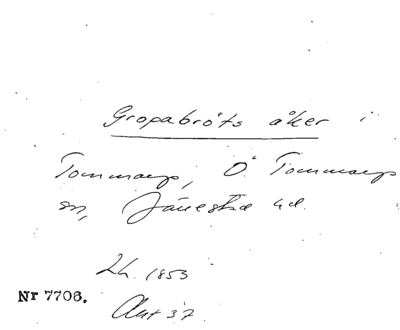 Gropabröts åker i
Tommarp, Ö. Tommarp
sn, Järrestad hd.
Lh. 1853
Nr 7706.
Akt 37